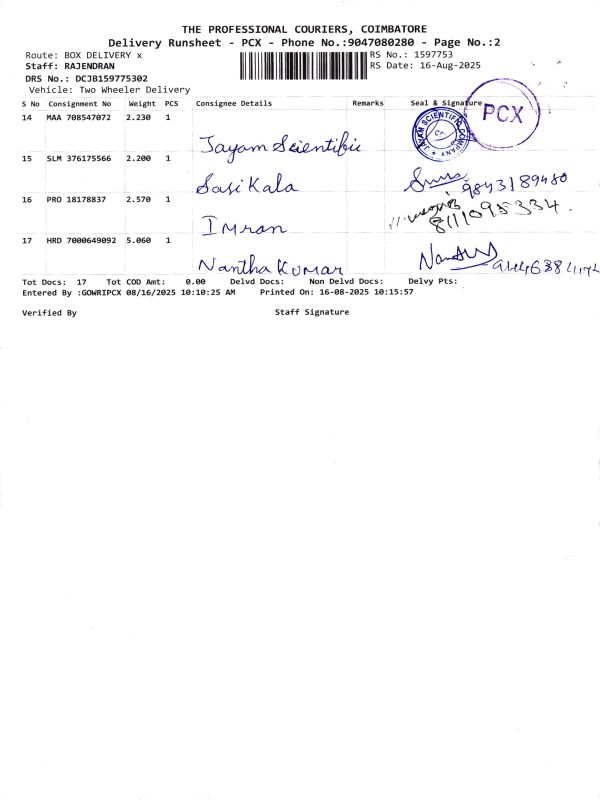 THE PROFESSIONAL COURIERS, COIMBATORE
Delivery Runsheet - PCX - Phone No.:9047080280 - Page No.:2
Route: BOX DELIVERY x
RS No.: 1597753
Staff: RAJENDRAN
RS Date: 16-Aug-2025
DRS No.: DCJB159775302
Vehicle: Two Wheeler Delivery
S No Consignment No Weight PCS Consignee Details Remarks Seal & Signature
14 MAA 708547072 2.230 1
Jayam Scientific
JAYAM SCIENTIFIC COMPANY
PCX
15 SLM 376175566 2.200 1
Sasi Kala
9843189480
16 PRO 18178837 2.570 1
Imran
8111095334.
17 HRD 7000649092 5.060 1
Nantha Kumar
Tot Docs: 17 Tot COD Amt: 0.00 Delvd Docs: Non Delvd Docs: Delvy Pts:
Entered By :GOWRIPCX 08/16/2025 10:10:25 AM Printed On: 16-08-2025 10:15:57
Verified By Staff Signature